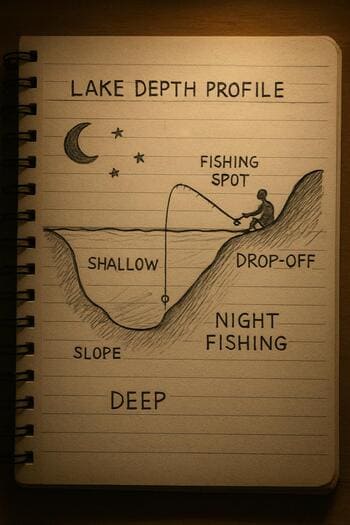 LAKE DEPTH PROFILE
FISHING
SPOT
SHALLOW
DROP-OFF
NIGHT
FISHING
SLOPE
DEEP